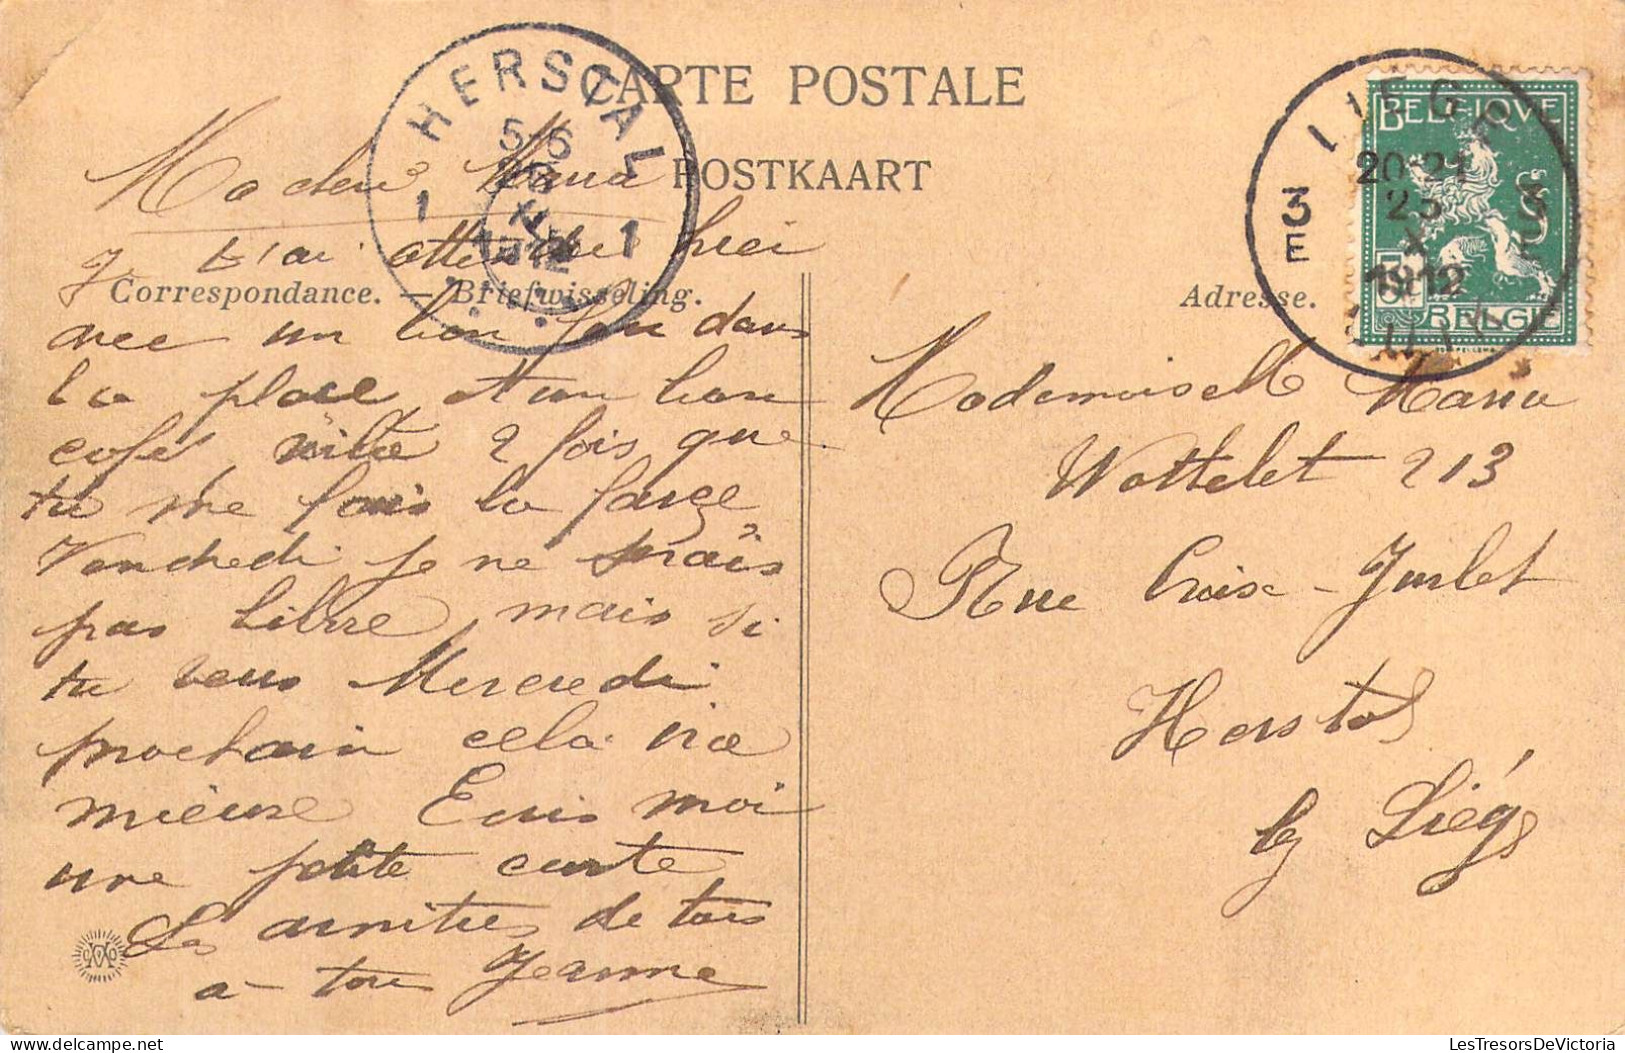 CARTE POSTALE
POSTKAART
HERSTAL
5-6
1 1
1912
LIEGE
20-21
23
X
1912
3
E
BELGIQUE
BELGIË
5
Ma chère Maria
Je t'ai attendu hier
Correspondance. — Briefwisseling.
Adresse.
avec un bon feu dans
la place et un bon
café, 2 fois que
tu me fais la farce
Vendredi je ne serais
pas libre mais si
tu veus Mercredi
prochain cela ira
mieuse Ecris moi
une petite carte
Les amitiés de tous
a toi Jeanne
Mademoiselle Maria
Wattelet 213
Rue Croise - Jurlet
Herstal
lez Liége
LesTresorsDeVictoria